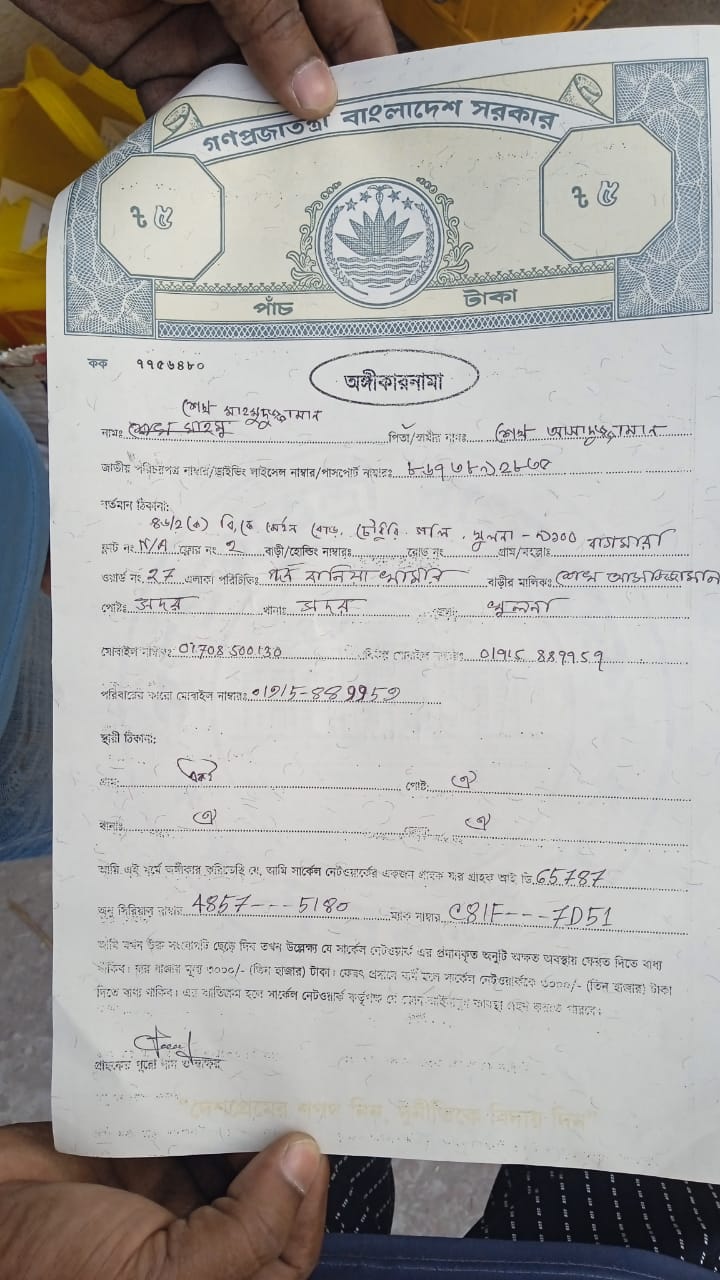 গণপ্রজাতন্ত্রী বাংলাদেশ সরকার
৳ ৫ ৳ ৫
পাঁচ টাকা
কক ৭৭৫৬৪৮০
অঙ্গীকারনামা
শেখ মাহমুদুজ্জামান
নামঃ পিতা/স্বামীর নামঃ শেখ আসাদুজ্জামান
জাতীয় পরিচয়পত্র নাম্বার/ড্রাইভিং লাইসেন্স নাম্বার/পাসপোর্ট নাম্বারঃ
বর্তমান ঠিকানা:
৪৬/2 (ক) বি, কে মেইন রোড, চৌধুরি গলি, খুলনা - ৯১০০ বাগমারা
ফ্লাট নং N/A ফ্লোর নং 2 বাড়ী/হোল্ডিং নাম্বারঃ রোড নং গ্রাম/মহল্লাঃ
ওয়ার্ড নং 27 এলাকা পরিচিতিঃ বাড়ীর মালিকঃ শেখ আসাদুজ্জামান
পোষ্টঃ সদর থানাঃ সদর জেলাঃ খুলনা
মোবাইল নাম্বারঃ 01708 500130 মোবাইল নাম্বারঃ 01915 889959
পরিবারের কারো মোবাইল নাম্বারঃ 01915-889959
স্থায়ী ঠিকানা:
গ্রাম: পোষ্ট: ঐ
থানাঃ ঐ জেলা: ঐ
আমি এই মর্মে অঙ্গীকার করিতেছি যে, আমি সার্কেল নেটওয়ার্কের একজন গ্রাহক যার গ্রাহক আই ডি 65787
অনু সিরিয়াল নাম্বার 4857---5180 ম্যাক নাম্বার C81F---7D51
আমি যখন উক্ত সংযোগটি ছেড়ে দিব তখন উল্লেখ্য যে সার্কেল নেটওয়ার্ক এর প্রদানকৃত অনুটি অক্ষত অবস্থায় ফেরত দিতে বাধ্য
থাকিব। যার বাজার মূল্য ৩০০০/- (তিন হাজার) টাকা। ফেরৎ প্রদানে ব্যর্থ হলে সার্কেল নেটওয়ার্ককে ৩০০০/- (তিন হাজার) টাকা
দিতে বাধ্য থাকিব। এর ব্যতিক্রম হলে সার্কেল নেটওয়ার্ক কর্তৃপক্ষ যে কোন আইনানুগ ব্যবস্থা গ্রহন করতে পারবে।
গ্রাহকের পুরো নাম ও স্বাক্ষর
"দেশপ্রেমের শপথ নিন, দুর্নীতিকে বিদায় দিন"